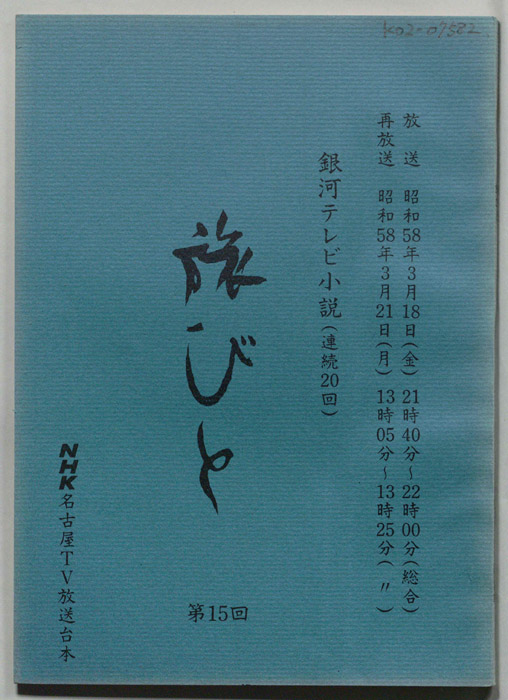 k02-07582
放 送 昭和58年3月18日(金)21時40分〜22時00分(総合)
再放送 昭和58年3月21日(月)13時05分〜13時25分(〃)
銀河テレビ小説(連続20回)
旅びと
第15回
NHK名古屋TV放送台本